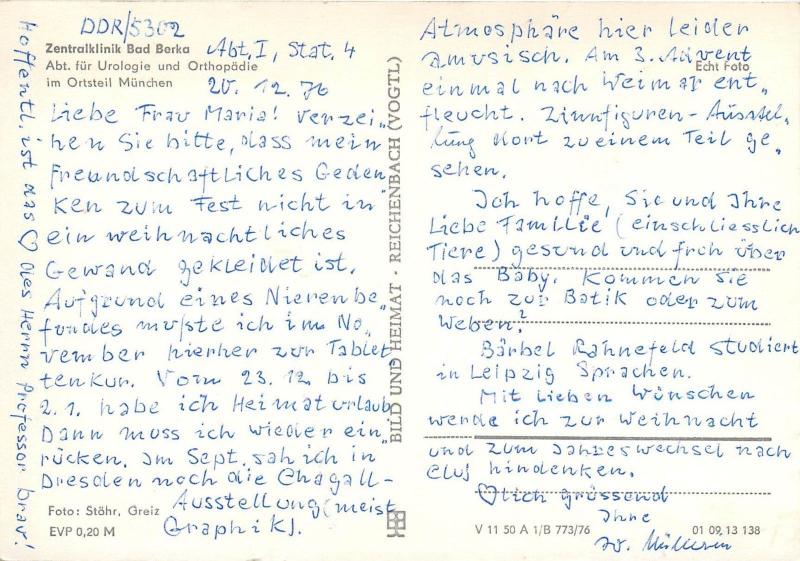 DDR/5302
Zentralklinik Bad Berka Abt. I, Stat. 4
Abt. für Urologie und Orthopädie
im Ortsteil München
20. 12. 76
Liebe Frau Maria! Verzei„
hen Sie bitte, dass mein
freundschaftliches Geden„
ken zum Fest nicht in
ein weihnachtliches
Gewand gekleidet ist.
Aufgrund eines Nierenbe„
fundes mußte ich im No„
vember hierher zur Tablet„
tenkur. Vom 23.12. bis
2.1. habe ich Heimaturlaub.
Dann muss ich wieder ein„
rücken. Im Sept. sah ich in
Dresden noch die Chagall-
Ausstellung (meist
Graphik).
Foto: Stöhr, Greiz
EVP 0,20 M
Hoffentl. ist das ♡ des Herrn Professor brav!
BILD UND HEIMAT · REICHENBACH (VOGTL)
Atmosphäre hier leider
amusisch. Am 3. Advent
Echt Foto
einmal nach Weimar ent„
fleucht. Zinnfiguren-Ausstel„
lung dort zu einem Teil ge„
sehen.
Ich hoffe, Sie und Ihre
Liebe Familie (einschliesslich
Tiere) gesund und froh über
das Baby. Kommen Sie
noch zur Batik oder zum
Weben?
Bärbel Rahnefeld studiert
in Leipzig Sprachen.
Mit lieben Wünschen
werde ich zur Weihnacht
und zum Jahreswechsel nach
Cluj hindenken.
♡lich grüssend
Ihre
V 11 50 A 1/B 773/76 01 09 13 138